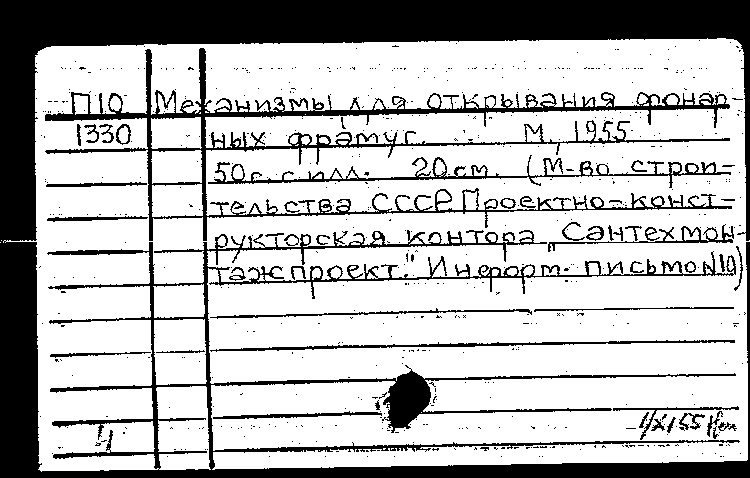 П10 Механизмы для открывания фонар-
1330 ных фрамуг. М., 1955
50 с. с илл. 20 см. (М-во строи-
тельства СССР. Проектно-конст-
рукторская контора „Сантехмон-
тажпроект." Информ. письмо №10)
4 1/X 55